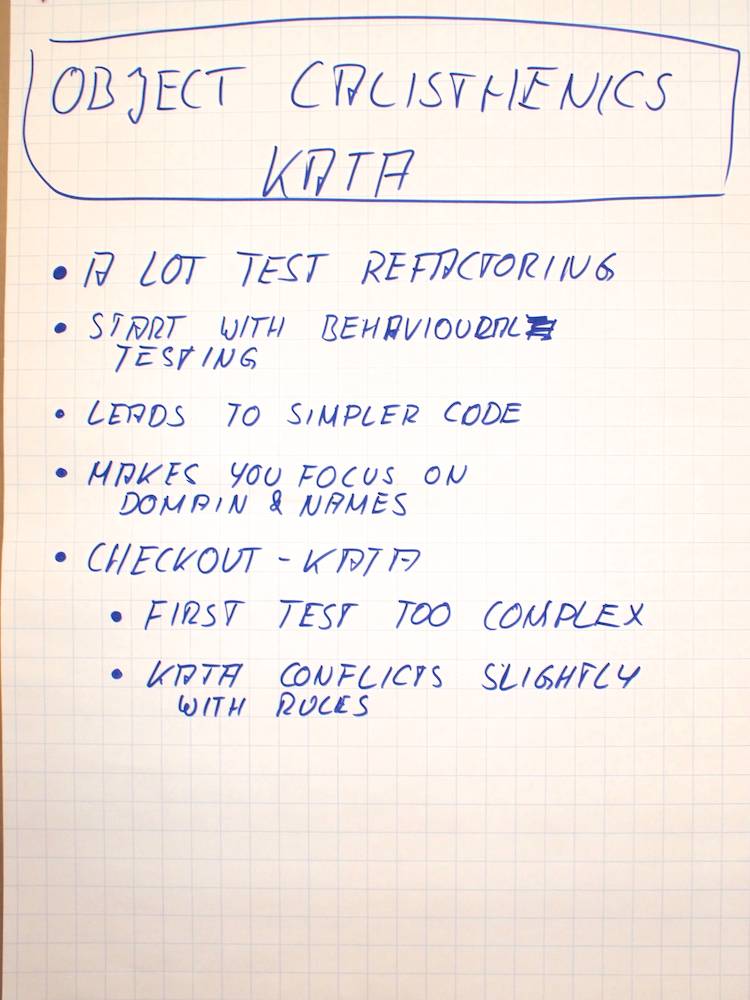 OBJECT CALISTHENICS
KATA
• A LOT TEST REFACTORING
• START WITH BEHAVIOURAL
TESTING
• LEADS TO SIMPLER CODE
• MAKES YOU FOCUS ON
DOMAIN & NAMES
• CHECKOUT - KATA
• FIRST TEST TOO COMPLEX
• KATA CONFLICTS SLIGHTLY
WITH RULES